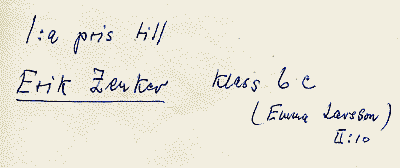 1:a pris till
Erik Zenker klass 6 c
(Emma Larsson)
II:10